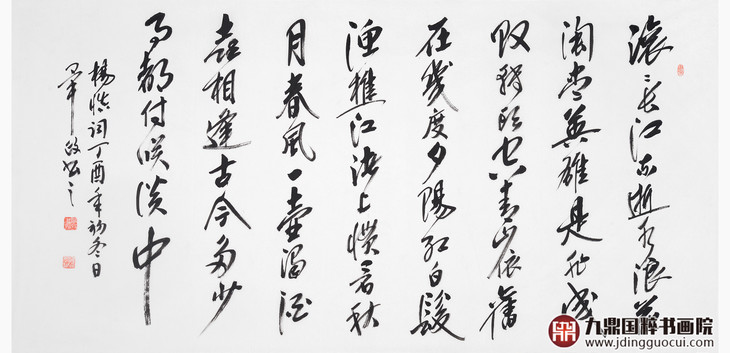 滚〻长江东逝水浪花
淘尽英雄是非成
败转头空青山依旧
在几度夕阳红白发
渔樵江渚上惯看秋
月春风一壶浊酒
喜相逢古今多少
事都付笑谈中
杨慎词丁酉年初冬日
九鼎国粹书画院
www.jdingguocui.com